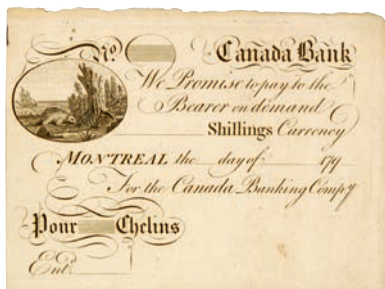 No. Canada Bank
We Promise to pay to the
Bearer on demand
Shillings Currency
MONTREAL the day of 179
For the Canada Banking Compy
Pour Chelins
Entd.